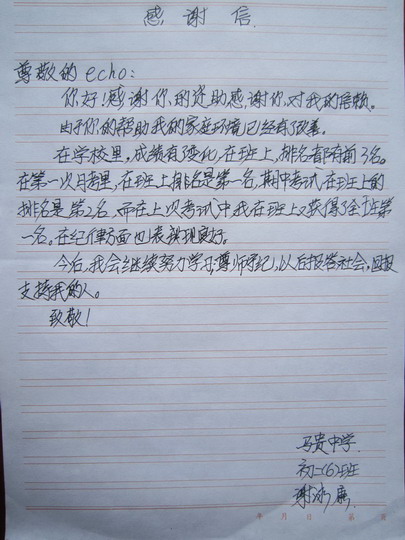 感谢信
尊敬的echo:
你好!感谢你的资助感谢你对我的信赖。
由于你的帮助我的家庭环境已经有了改善。
在学校里,成绩有了变化,在班上,排名都有前3名。
在第一次月考里,在班上排名是第一名,期中考试在班上的
排名是第2名,而在上次考试中我在班上又获得了全班第
一名。在纪律方面也表现良好。
今后,我会继续努力学习,尊师守纪,以后报答社会,回报
支持我的人。
致敬!
马贵中学
初二(6)班
谢
年 月 日 第 页